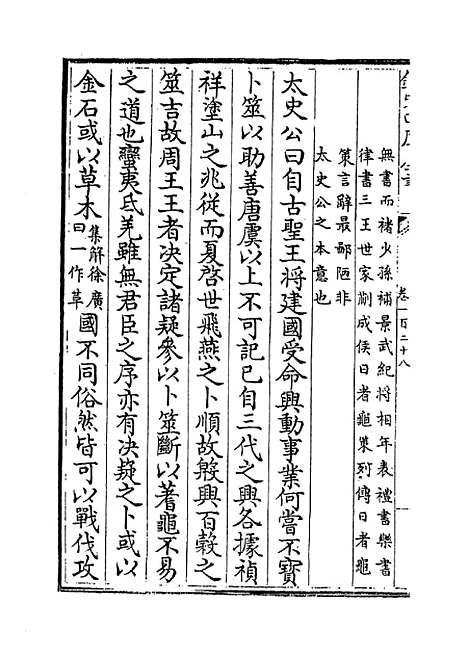 無書而褚少孫補景武紀將相年表禮書樂書
律書三王世家蒯成侯日者龜策列傳日者龜
策言辭最鄙陋非
太史公之本意也
太史公曰自古聖王將建國受命興動事業何嘗不寶
卜筮以助善唐虞以上不可記已自三代之興各據禎
祥塗山之兆從而夏啓世飛燕之卜順故殷興百穀之
筮吉故周王王者決定諸疑參以卜筮斷以蓍龜不易
之道也蠻夷氐羌雖無君臣之序亦有決疑之卜或以
金石或以草木集解徐廣曰一作革國不同俗然皆可以戰伐攻
卷一百二十八